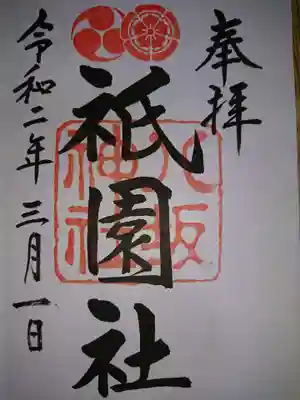 奉拝
祇園社
八坂
神社
令和二年三月一日